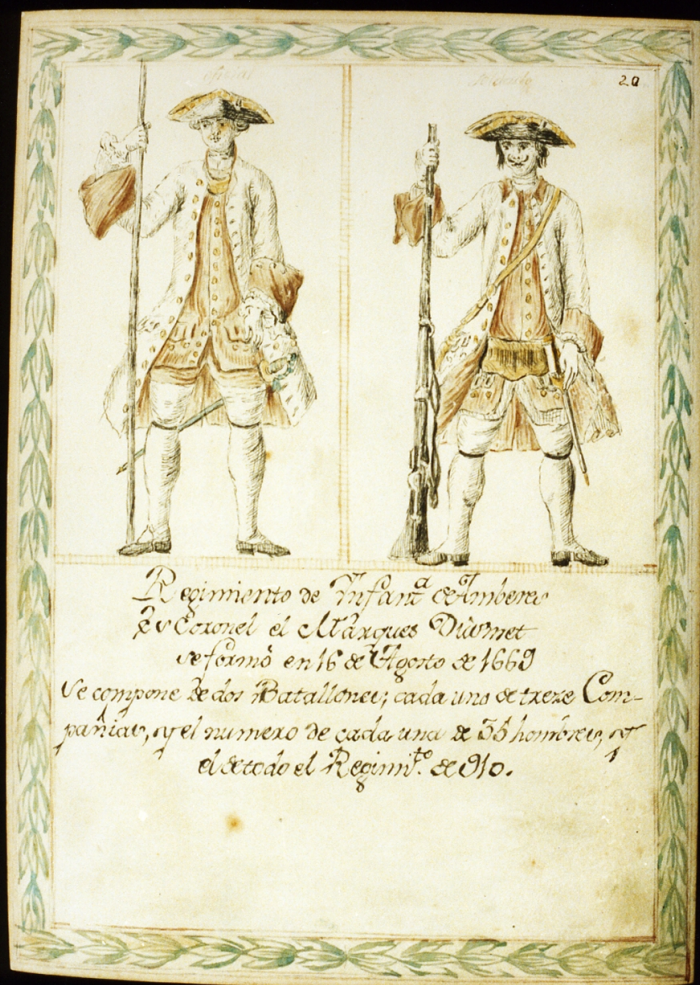 oficial
Soldado
20
Regimiento de Infan.ª de Amberes
Es Coronel el Marques
se formò en 16 de Agosto de 1669
Se compone de dos Batallones; cada uno de treze Com-
pañias, y el numero de cada una de 35 hombres, y
el de todo el Regimi.to de 910.